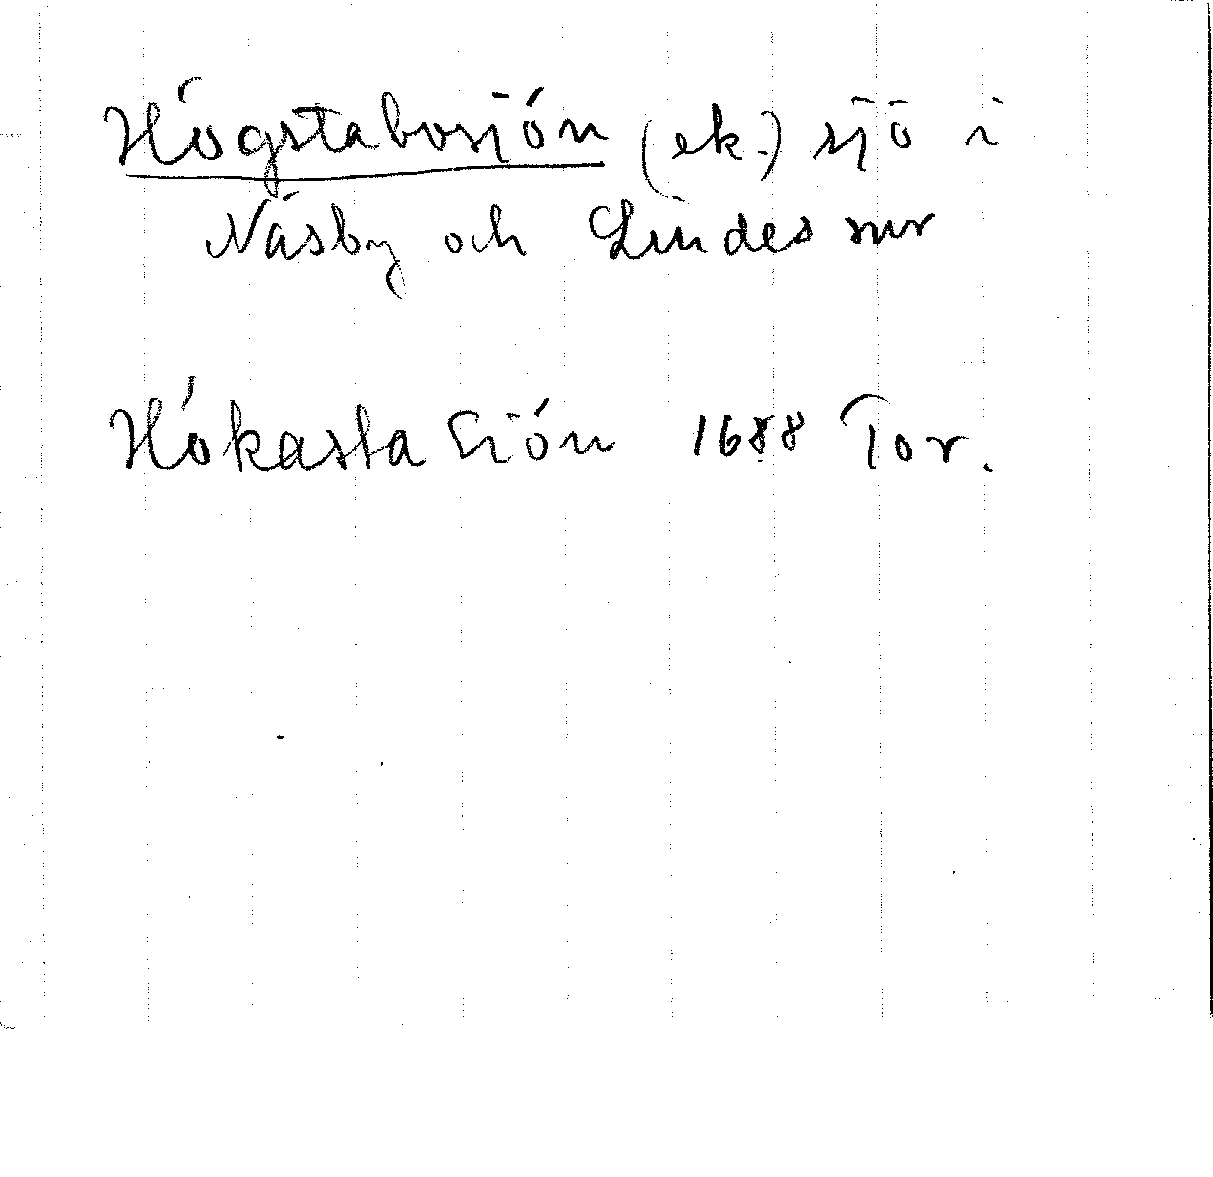 Högstabosjön (ek.) sjö i
Näsby och Lindes snr
Hökasta Siön 1688 Tor.